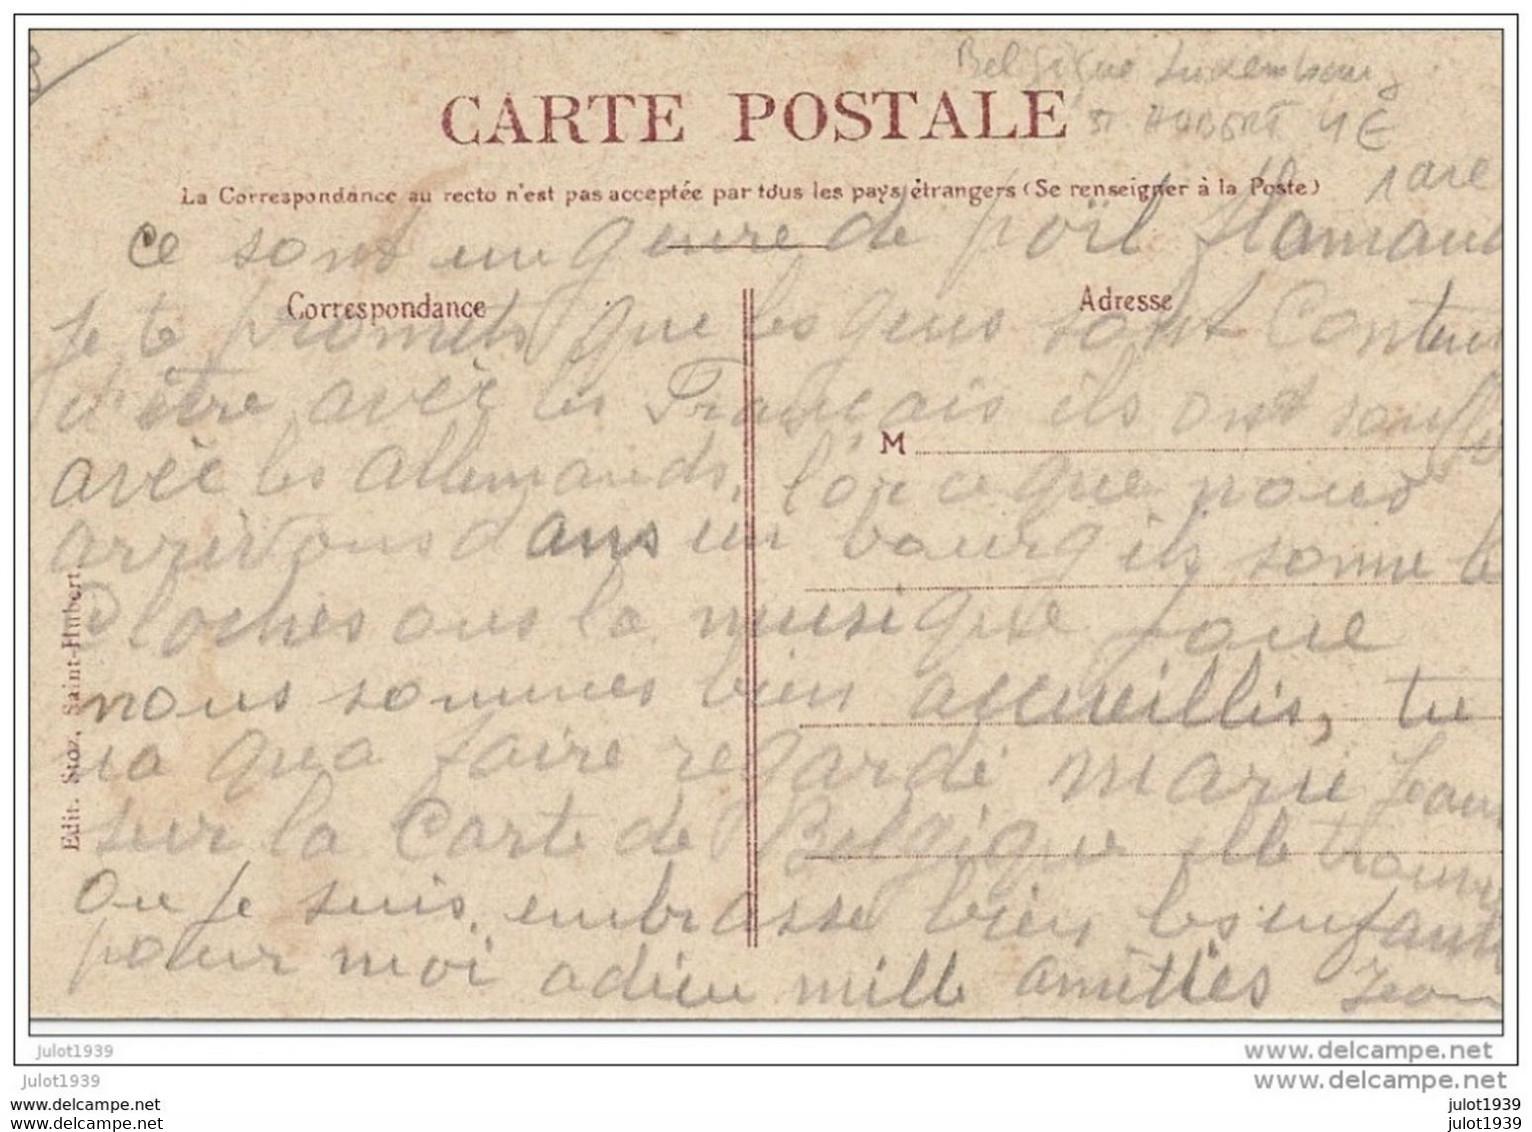 3
Belgique Luxembourg
CARTE POSTALE
ST HUBERT 4 €
rare
La Correspondance au recto n'est pas acceptée par tous les pays étrangers (Se renseigner à la Poste)
Ce sont un genre de Flamand
Correspondance
Adresse
Je te promets que les gens sont Content
d'être avec les Français ils ont souffer
M
avec les allemands, l'orceque nous
arrivons dans un bourg ils sonne le
Cloches ous la musique joue
nous sommes bien accueillis, tu
na qua faire regardé Marie Jean
sur la Carte de Belgique elle trouve
ou Je suis, embrasse bien les enfants
pour moi adieu mille amitiés Jean
Edit. Stoz, Saint-Hubert.
julot1939
www.delcampe.net
julot1939
www.delcampe.net
www.delcampe.net
julot1939
www.delcampe.net
julot1939